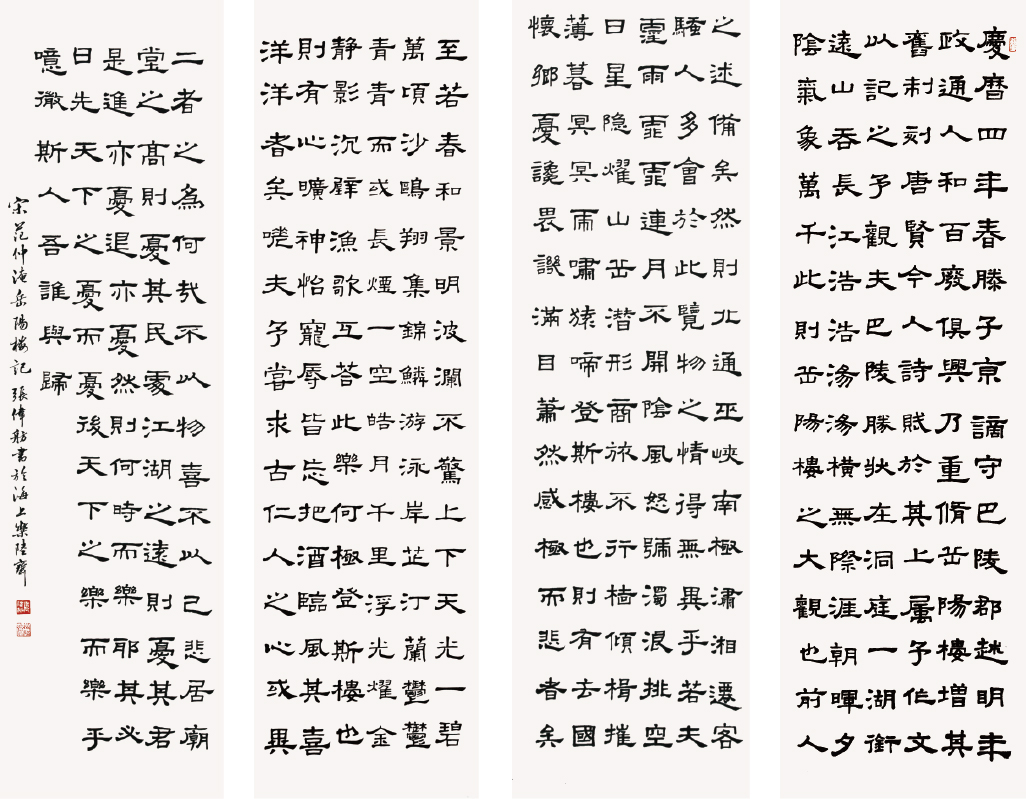 慶曆四年春滕子京謫守巴陵郡越明年
政通人和百廢俱興乃重脩岳陽樓增其
舊制刻唐賢今人詩賦於其上屬予作文
以記之予觀夫巴陵勝狀在洞庭一湖銜
遠山吞長江浩浩湯湯橫無際涯朝暉夕
陰氣象萬千此則岳陽樓之大觀也前人
之述備矣然則北通巫峽南極瀟湘遷客
騷人多會於此覽物之情得無異乎若夫
霪雨霏霏連月不開陰風怒號濁浪排空
日星隐燿山岳潛形商旅不行檣傾楫摧
薄暮冥冥虎嘯猿啼登斯樓也則有去國
懷鄉憂讒畏譏滿目蕭然感極而悲者矣
至若春和景明波瀾不驚上下天光一碧
萬頃沙鷗翔集錦鱗游泳岸芷汀蘭鬱鬱
青青而或長煙一空皓月千里浮光燿金
静影沉璧漁歌互荅此樂何極登斯樓也
則有心曠神怡寵辱皆忘把酒臨風其喜
洋洋者矣嗟夫予嘗求古仁人之心或異
二者之為何哉不以物喜不以己悲居廟
堂之高則憂其民處江湖之遠則憂其君
是進亦憂退亦憂然則何時而樂耶其必
曰先天下之憂而憂後天下之樂而樂乎
噫微斯人吾誰與歸
宋范仲淹岳陽樓記 張偉舫書於海上樂陸齋